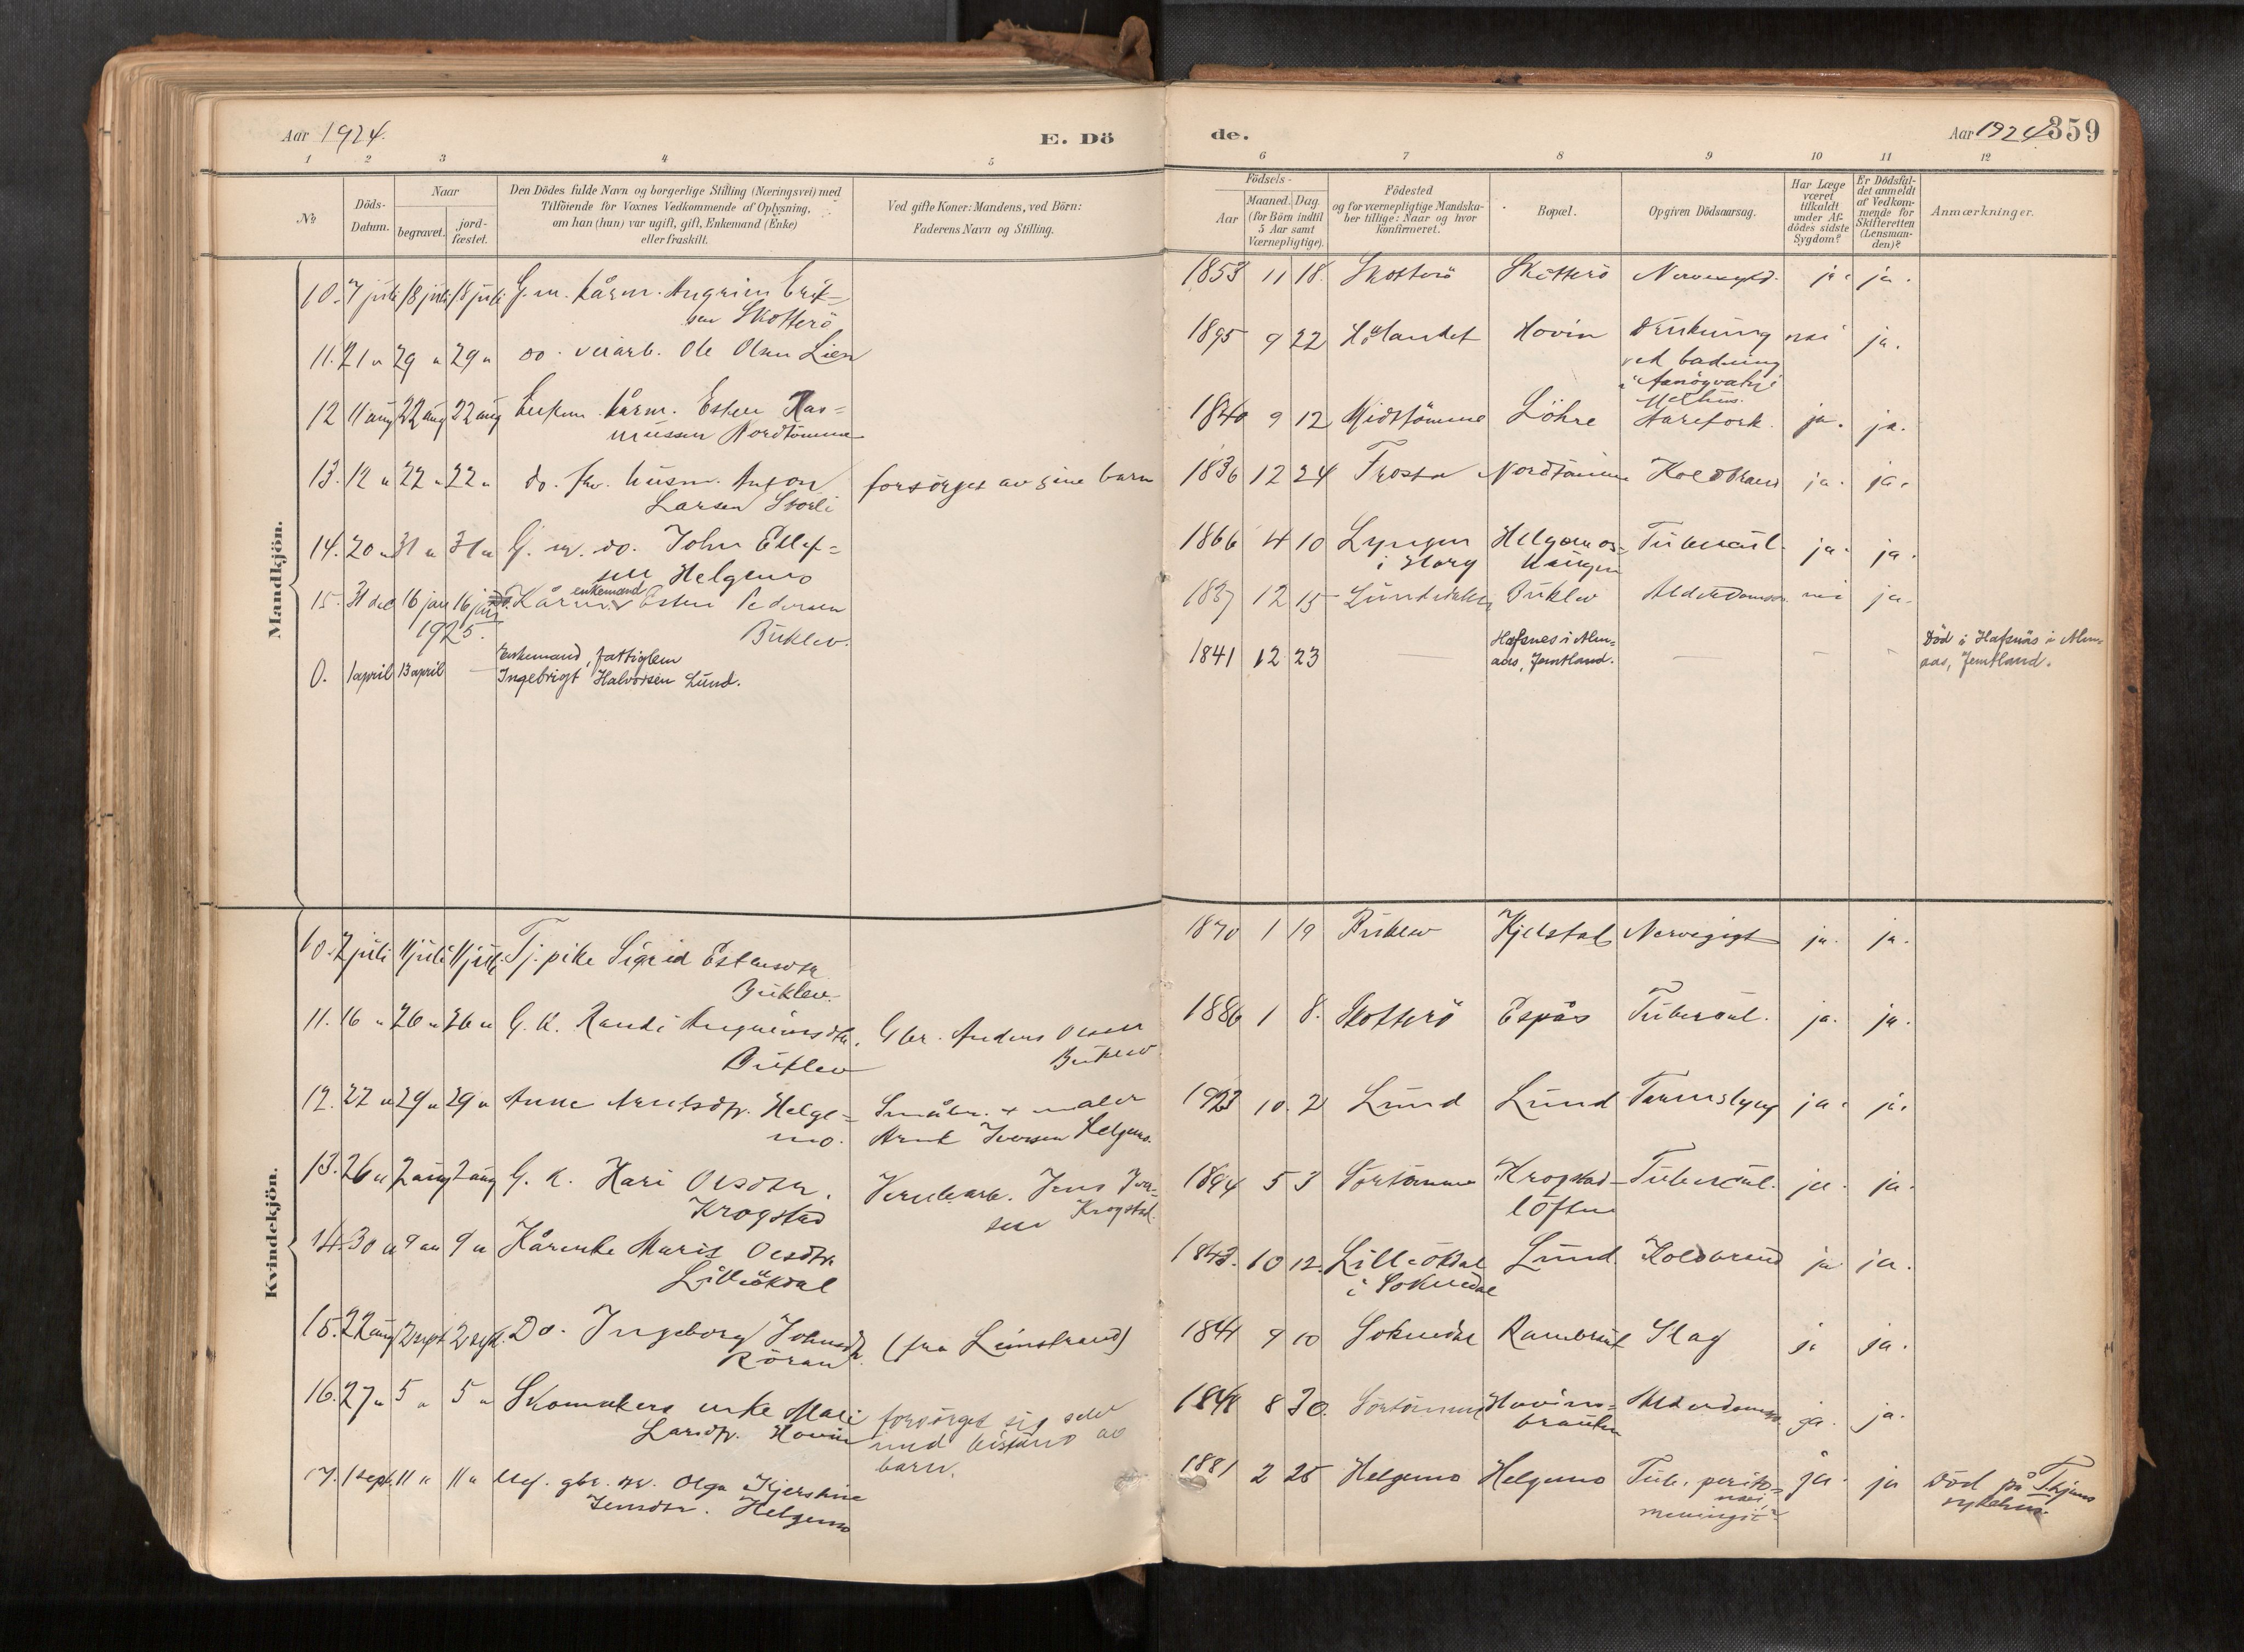 Aar 1924.
E. Dö
de.
Aar 1924
359
1 2 3 4 5 6 7 8 9 10 11 12
No
Döds-
Datum.
Naar
begravet.
jord-
fæstet.
Den Dödes fulde Navn og borgerlige Stilling (Næringsvei) med
Tilföiende for Voxnes Vedkommende af Oplysning,
om han (hun) var ugift, gift, Enkemand (Enke)
eller fraskilt.
Ved gifte Koner: Mandens, ved Börn:
Faderens Navn og Stilling.
Födsels-
Aar
Maaned. Dag.
(for Börn indtil
5 Aar samt
Værnepligtige).
Födested
og for værnepligtige Mandska-
ber tillige: Naar og hvor
Konfirmeret.
Bopæl.
Opgiven Dödsaarsag.
Har Læge
været
tilkaldt
under Af-
dödes sidste
Sygdom?
Er Dödsfal-
det anmeldt
af Vedkom-
mende for
Skifteretten
(Lensman-
den)?
Anmærkninger.
Mandkjön.
10. 7 juli 18 juli 18 juli G.m. kårm. Angrim Erik-
sen Skotterö
1853 11 18. Skotterö Skotterö ja. ja.
11. 21 " 29 " 29 " do. veiarb. Ole Olsen Lien
1895 9 22 Hölandet Hovin Drukning nei ja.
ved badning
i
Melhus.
12 11 aug 22 aug 22 aug Enkem. kårm. Esten Ras-
mussen Nordtömme
1840 9 12 Midttömme Löhre ja. ja.
13. 12 " 22 " 22 " do. fhv. husm. Anton
Larsen Storli
forsörget av sine barn
1836 12 24 Frosta Nordtömme Koldbrand ja. ja.
14. 20 " 31 " 31 " G. m. do. John Ellef-
sen Helgemo
1866 4 10 Lyngen
i Horg
Helgemo
Tuberkul. ja. ja.
15. 31 dec 16 jan 16 jan Kårm. enkemand Esten Pedersen
1925.
Buklev.
1837 12 15 Buklev Alderdomss. nei ja.
0. 1 april 13 april —
Enkemand, fattiglem
Ingebrigt Halvorsen Lund.
1841 12 23 —
Hafsnes i Alm-
aas, Jemtland.
— — —
Död i Hafsnäs i Alm-
aas, Jemtland.
Kvindekjön.
10. 7 juli 11 juli 11 juli Tj. pike Sigrid Estensdtr
Buklev.
1870 1 19 Buklev Kjelstad Nervegigt ja. ja.
11. 16 " 26 " 26 " G. K. Randi Angrimsdtr.
Buklev
Gbr. Anders Olsen
Buklev
1886 1 8. Skotterö Espås Tuberkul. ja. ja.
12. 22 " 29 " 29 " Anne Arntsdtr. Helge-
mo.
Småbr. + maler
Arnt Iversen Helgemo.
1923 10. 2 Lund Lund Tarmslyng ja. ja.
13. 26 " 2 aug 2 aug G. K. Kari Olsdtr.
Krogstad
Verkarb. Jens Iver-
sen Krogstad.
1894 5 3 Sörtömme Krogstad-
löften
Tuberkul. ja. ja.
14. 30 " 9 au 9 " Kårenke Marit Olsdtr.
Lilleökdal
1843. 10 12. Lilleökdal
i Soknedal
Lund. Koldbrand ja ja.
15. 22 aug 2 sept 2 sept. Do. Ingeborg Johnsdtr.
Röran
(fra Leinstrand)
1841 9 10 Soknedal Rambraut Slag ja ja.
16. 27 " 5 " 5 " Skomakers enke Mali
Larsdtr. Hovin
forsörget sig selv
med bistand av
barn.
1848 8 30. Sörtömme Hovins-
brauten
Alderdomss. ja. ja.
17. 1 sept. 11 " 11 " Ugf. gbr. Olga Kjerstine
Jensdtr. Helgemo
1881 2 25 Helgemo Helgemo Tub. perito-
meningit
ja. ja
Död på T.hjems
sykehus.